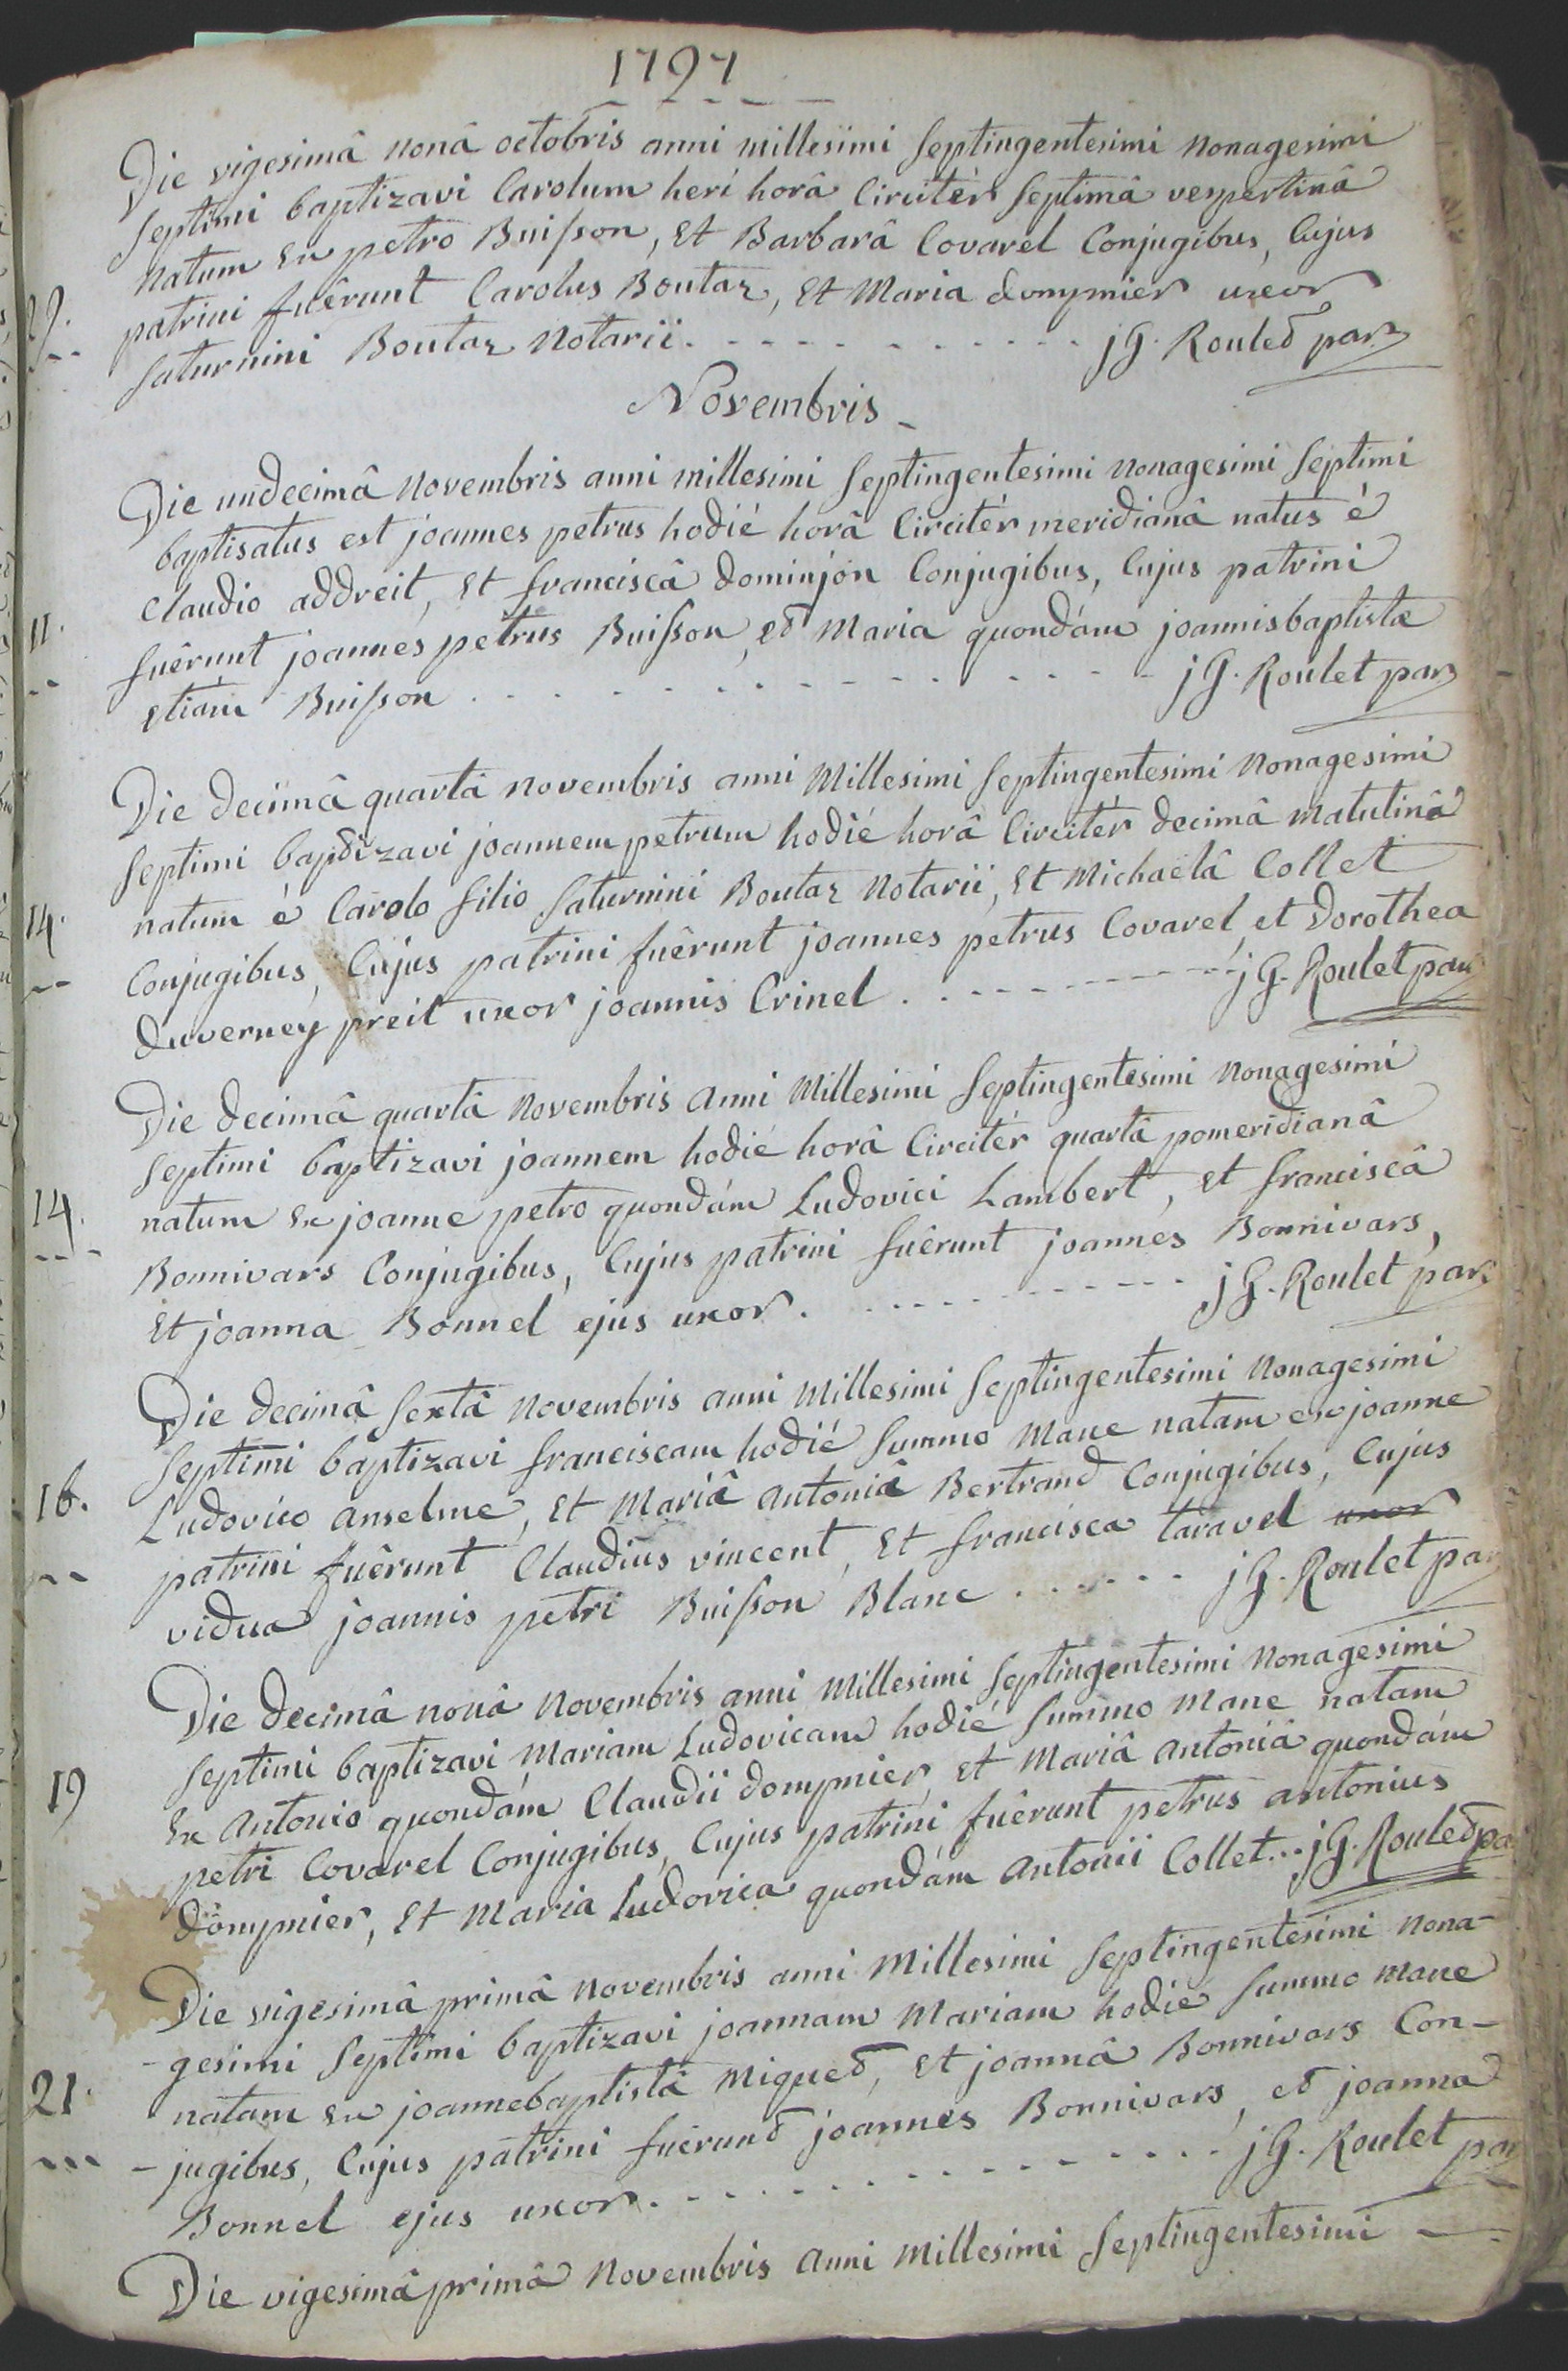 1797
Die vigesimâ nonâ octobris anni millesimi Septingentesimi nonagesimi
Septimi baptizavi Carolum heri horâ Circitèr Septimâ vespertinâ
natum Ex petro Buisson, Et Barbarâ Covarel Conjugibus, Cujus
29. patrini fuêrunt Carolus Boutaz, Et Maria dompmier uxor
Saturnini Boutaz Notarii. - - - - - - - - - - - jG. Roulet par
Novembris
Die undecimâ Novembris anni millesimi Septingentesimi nonagesimi Septimi
baptisatus est joannes petrus hodié horâ Circitér meridianâ natus é
Claudio addreit, Et franciscâ dominjon Conjugibus, Cujus patrini
11. fuêrunt joannes petrus Buisson, et Maria quondám joannisbaptistæ
Etiám Buisson - - - - - - - - - - - - - jG. Roulet par
Die decimâ quartâ novembris anni Millesimi Septingentesimi nonagesimi
Septimi baptizavi joannem petrum hodié horâ Circitér decimâ matutinâ
14. natum é Carolo filio Saturnini Boutaz Notarii, Et Michaelâ Collet
Conjugibus, Cujus patrini fuêrunt joannes petrus Covarel, et Dorothea
duverney preit uxor joannis Crinel . - - - - - - - - jG. Roulet par
Die decimâ quartâ Novembris Anni Millesimi Septingentesimi nonagesimi
Septimi baptizavi joannem hodié horâ Circitér quartâ pomeridianâ
14. natum Ex joanne petro quondám Ludovici Lambert, Et franciscâ
Bonnivars Conjugibus, Cujus patrini fuêrunt joannés Bonnivars,
Et joanna Bonnel ejus uxor. - - - - - - - - - - jG. Roulet par
Die decimâ Sextâ Novembris anni Millesimi Septingentesimi Nonagesimi
Septimi baptizavi franciscam hodié Summo Mane natam ex joanne
16. Ludovico anselme, Et Mariâ Antoniâ Bertrand Conjugibus, Cujus
patrini fuêrunt Claudius vincent, Et francisca taravel uxor
vidua joannis petri Buisson Blanc . . . . . . jG. Roulet par
Die decimâ nonâ Novembris anni Millesimi Septingentesimi Nonagesimi
Septimi baptizavi Mariam Ludovicam hodié Summo Mane natam
19 Ex Antonio quondám Claudii dompmier, Et Mariâ Antoniâ quondám
petri Covarel Conjugibus, Cujus patrini fuêrunt petrus antonius
dompmier, Et Maria Ludovica quondám Antonii Collet... jG. Roulet par
Die vigesimâ primâ Novembris anni Millesimi Septingentesimi nona-
-gesimi Septimi baptizavi joannam Mariam hodié Summo Mane
21. natam Ex joannebaptistâ Miguet, Et joannâ Bonnivars Con-
-jugibus, Cujus patrini fuêrunt joannes Bonnivars, et joanna
Bonnel ejus uxor. - - - - - - - - - - - - jG. Roulet par
Die vigesimâ primâ Novembris Anni Millesimi Septingentesimi